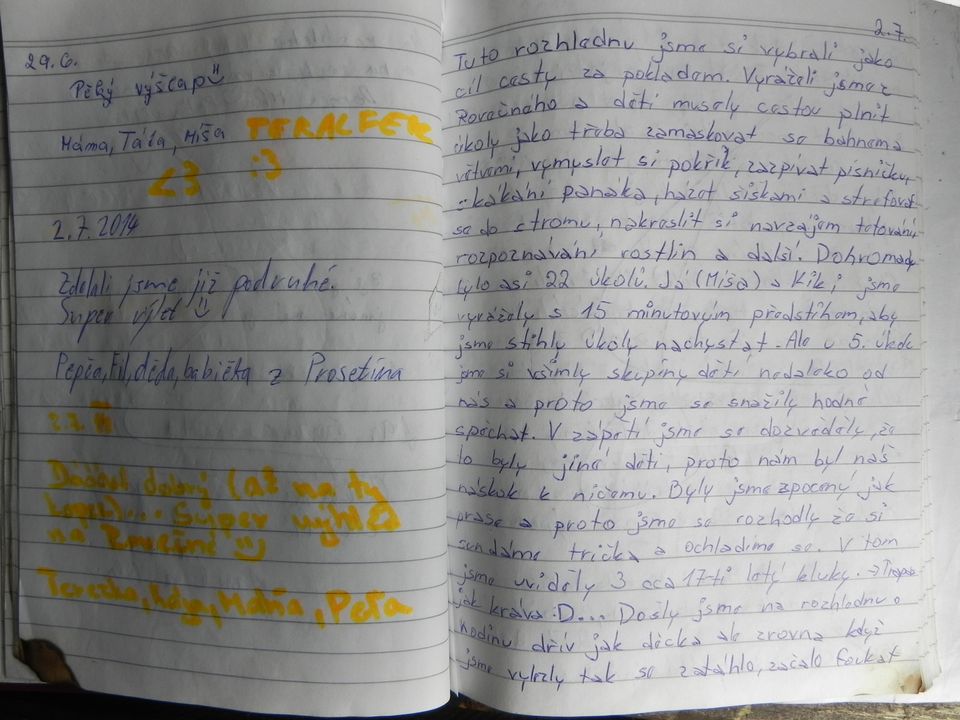 29.6.
Pěký výšlap
Máma, Táta, Míša
<3 :3
2.7.2014
Zdolali jsme již podruhé.
Super výlet
Pepča, Fil, děda, babička z Prosetína
2.7.
Dááást dobrý (až na ty
kopce)... Super výhled
na Rovečné
Terezka, Kája, Máňa, Peťa
2.7.
Tuto rozhlednu jsme si vybrali jako
cíl cesty za pokladem. Vyráželi jsme z
Rovečného a děti musely cestou plnit
úkoly jako třeba zamaskovat se bahnem a
větvemi, vymyslet si pokřik, zazpívat písničku,
skákání panáka, házet šiškami a strefovat
se do stromu, nakreslit si navzájem tetování,
rozpoznávání rostlin a další. Dohromady
bylo asi 22 úkolů. Já (Míša) a Kiki jsme
vyrážely s 15 minutovým předstihem, aby
jsme stihly úkoly nachystat. Ale u 5. úkolu
jsme si všimly skupiny dětí nedaleko od
nás a proto jsme se snažily hodně
spěchat. V zápětí jsme se dozvěděly, že
to byly jiné děti, proto nám byl náš
náskok k ničemu. Byly jsme zpocený jak
prase a proto jsme se rozhodly že si
sundáme trička a ochladíme se. V tom
jsme uviděly 3 cca 17-ti letý kluky. →Trapas
jak kráva :D... Došly jsme na rozhlednu o
hodinu dřív jak děcka ale zrovna když
jsme vylezly tak se zatáhlo, začalo foukat